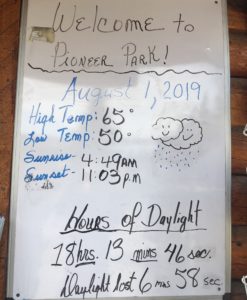 Welcome to
Pioneer Park!
August 1, 2019
High Temp: 65°
Low Temp: 50°
Sunrise- 4:49AM
Sunset- 11:03 p.m
Hours of Daylight
18 hrs. 13 mins 46 sec.
Daylight lost 6 mns 58 sec.